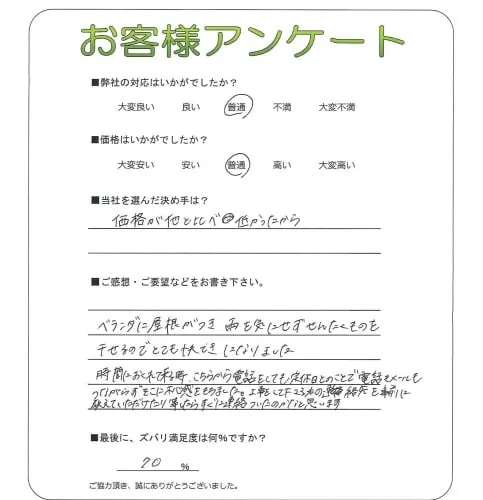 お客様アンケート
■弊社の対応はいかがでしたか？
大変良い 良い 普通 不満 大変不満
■価格はいかがでしたか？
大変安い 安い 普通 高い 大変高い
■当社を選んだ決め手は？
価格が他と比べ 低かったから
■ご感想・ご要望などをお書き下さい。
ベランダに屋根がつき 雨を気にせずせんたくものを
干せるのでとても快てきになりました
時間におくれて来る時、こちらから電話をしても定休日とのことで電話もメールも
つながらずそこに不感をもちました。工事をして下さる方の連絡先を事前に
教えていただけたら すぐに連絡ついたのかなと思います
■最後に、ズバリ満足度は何%ですか？
70 %
ご協力頂き、誠にありがとうございました。